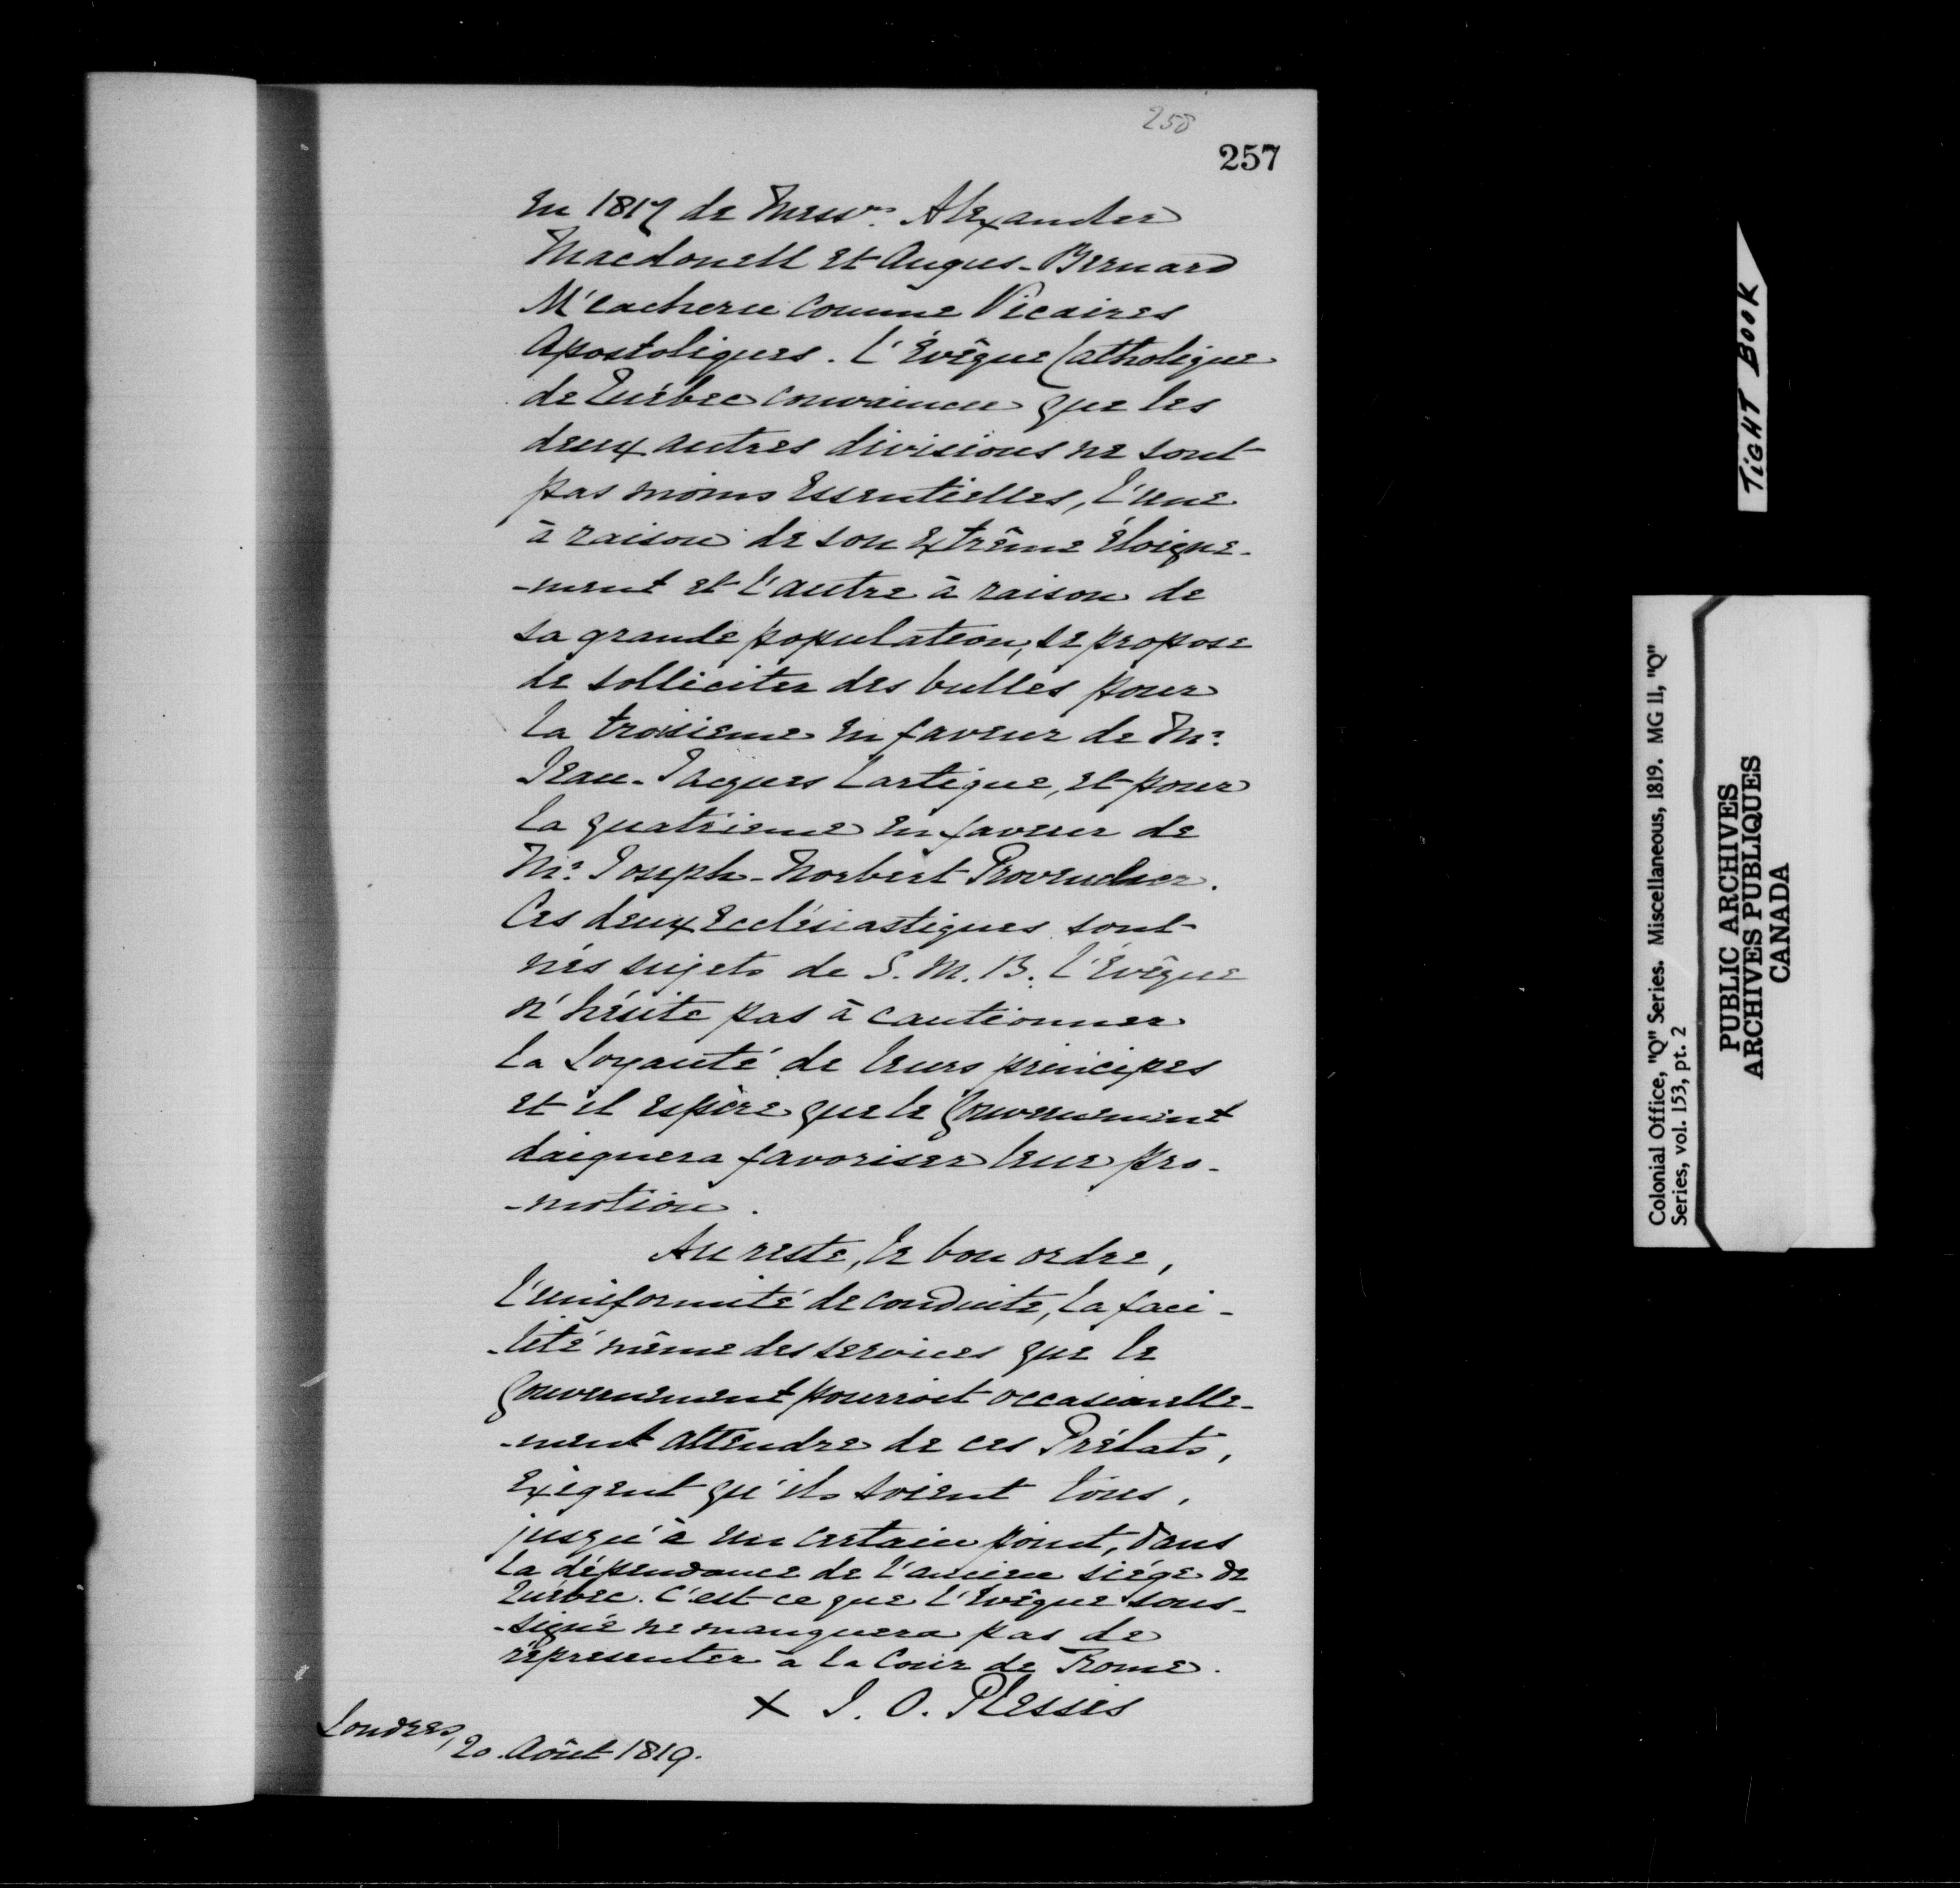 258
257
en 1817 de Messrs. Alexander
Macdonell et Angus-Bernard
M'Eachern comme Vicaires
Apostoliques. L'Évêque Catholique
de Québec convaincu que les
deux autres divisions ne sont
pas moins essentielles, l'une
à raison de son extrême éloigne-
-ment et l'autre à raison de
sa grande population, se propose
de solliciter des bulles pour
la troisieme en faveur de Mr.
Jean-Jacques Lartigue, et pour
la quatrieme en faveur de
Mr. Joseph-Norbert Provencher.
Ces deux Ecclésiastiques sont
nés sujets de S. M. B. L'Évêque
n'hésite pas à cautionner
la loyauté de leurs principes
et il espère que le Gouvernement
daignera favoriser leur pro-
-motion.
Au reste, le bon ordre,
l'uniformité de conduite, la faci-
-lité même des services que le
Gouvernement pourroit occasionelle-
-ment attendre de ces Prélats,
exigent qu'ils soient tous,
jusqu'à un certain point, dans
la dépendance de l'ancien siége de
Québec. C'est ce que l'Evêque sous-
-signé ne manquera pas de
répresenter à la Cour de Rome.
+ J. O. Plessis
Londres,
20 Août 1819.
TIGHT BOOK
Colonial Office, "Q" Series. Miscellaneous, 1819. MG 11, "Q"
Series, vol. 153, pt. 2
PUBLIC ARCHIVES
ARCHIVES PUBLIQUES
CANADA